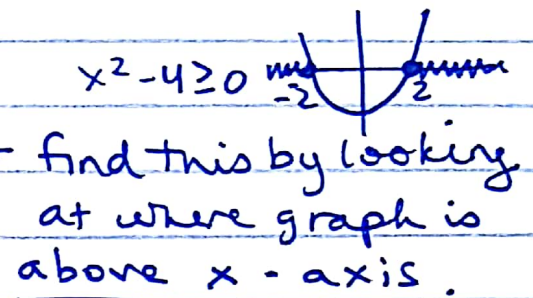 x² -4≥0 -2 2
- find this by looking
at where graph is
above x - axis.